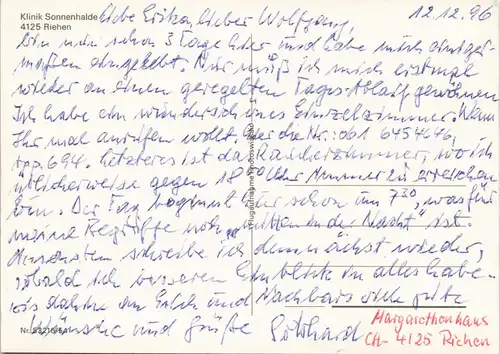 Klinik Sonnenhalde
4125 Riehen
12.12.96
Liebe Erika, lieber Wolfgang,
bin nun schon 3 Tage hier und habe mich einiger-
maßen eingelebt. Nur muß ich mich erstmal
wieder an einen geregelten Tagesablauf gewöhnen.
Ich habe ein wunderschönes Einzelzimmer. Wenn
Ihr mal anrufen wollt, hier die Nr.: 061 6454646,
App. 694. Letzteres ist das Raucherzimmer, wo ich
üblicherweise gegen 18 Uhr Nummer zu erreichen
bin. Der Tag beginnt hier schon um 7 30, was für
meine Begriffe noch "mitten in der Nacht" ist.
Ansonsten schreibe ich demnächst wieder,
sobald ich besseren Einblick in alles habe.
Bis dahin an Euch und Nachbars viele gute
Wünsche und Grüße Gotthard
Margarethenhaus
CH-4125 Riehen